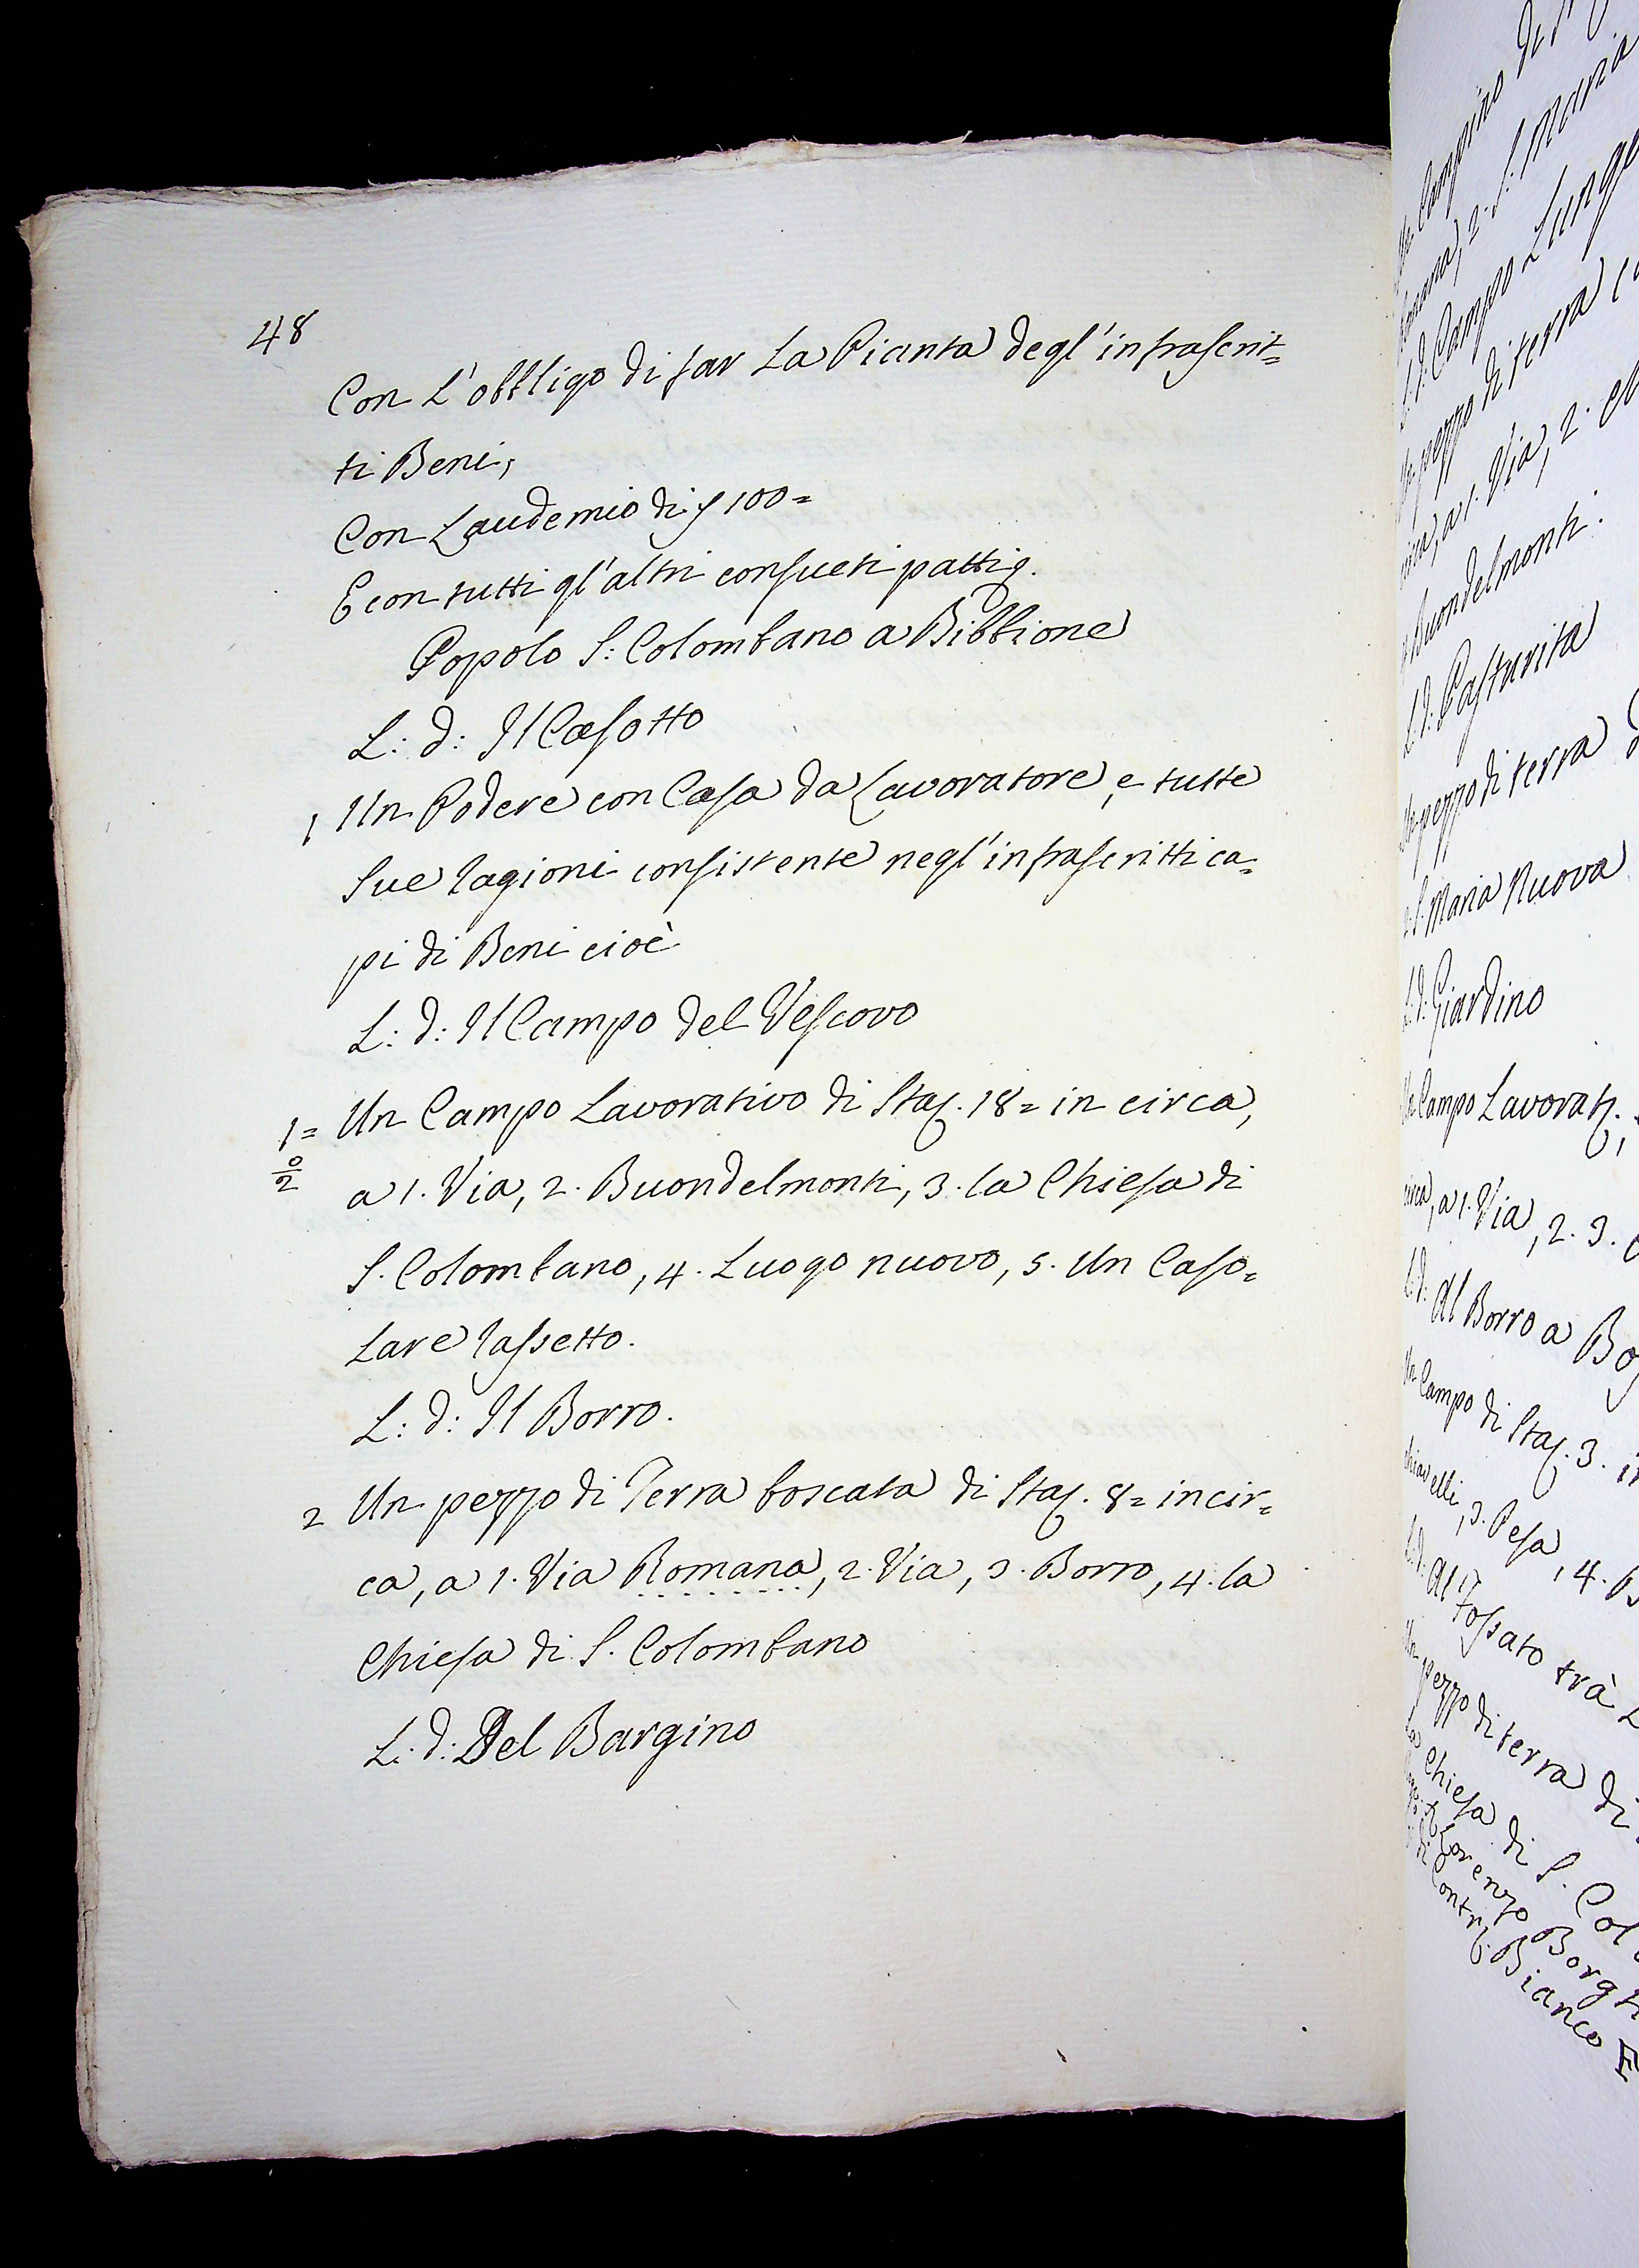 48
Con L'obbligo di far La Pianta degl'infrascrit=
ti Beni,
Con Laudemio di f 100=
E con tutti gl'altri consueti patti
Popolo S: Colombano a Bibbione
L: d: Il Casotto
1 Un Podere con Casa da Lavoratore, e tutte
Sue ragioni consistente negl'infrascritti ca=
pi di Beni cioè
L: d: Il Campo del Vescovo
1= Un Campo Lavorativo di Sta. 18= in circa,
0/2 a 1. Via, 2. Buondelmonti, 3. la Chiesa di
S. Colombano, 4. Luogo nuovo, 5. Un Caso=
Lare rassetto.
L: d: Il Borro.
2 Un pezzo di Terra boscata di Sta. 8= in cir=
ca, a 1. Via Romana, 2. Via, 3. Borro, 4. la
Chiesa di S. Colombano
L: d: Del Bargino
Campino
2. S: Maria
L: d: Campo Lungo
pezzo di terra
a 1. Via, 2.
Buondelmonti.
L: d: Pasturita
pezzo di terra
S. Maria Nuova
L: d: Giardino
Un Campo Lavorat.
circa, a 1. Via, 2. 3.
L: d: Al Borro a
Un Campo di Sta. 3.
3. Pesa, 4.
L: d: Al Fossato trà
Un pezzo di terra di
la Chiesa di S.
Lorenzo
di Contr. Bianco